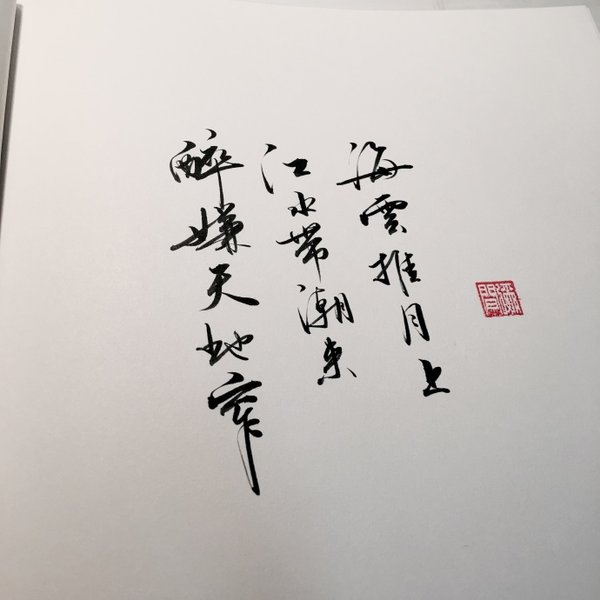 海雲推月上
江水帶潮來
醉嫌天地窄